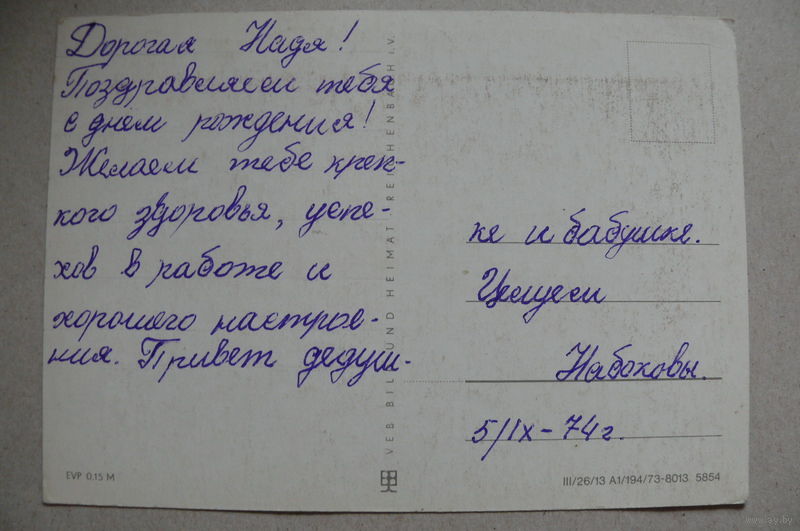 Дорогая Надя!
Поздравляем тебя
с днём рождения!
Желаем тебе креп-
кого здоровья, успе-
хов в работе и
хорошего настрое-
ния. Привет дедуш-
ке и бабушке.
Целуем
Набоковы.
5/IX-74г.
VEB BILD UND HEIMAT REICHENBACH i.V.
EVP 0,15 M
III/26/13 A1/194/73-8013 5854
www.ay.by